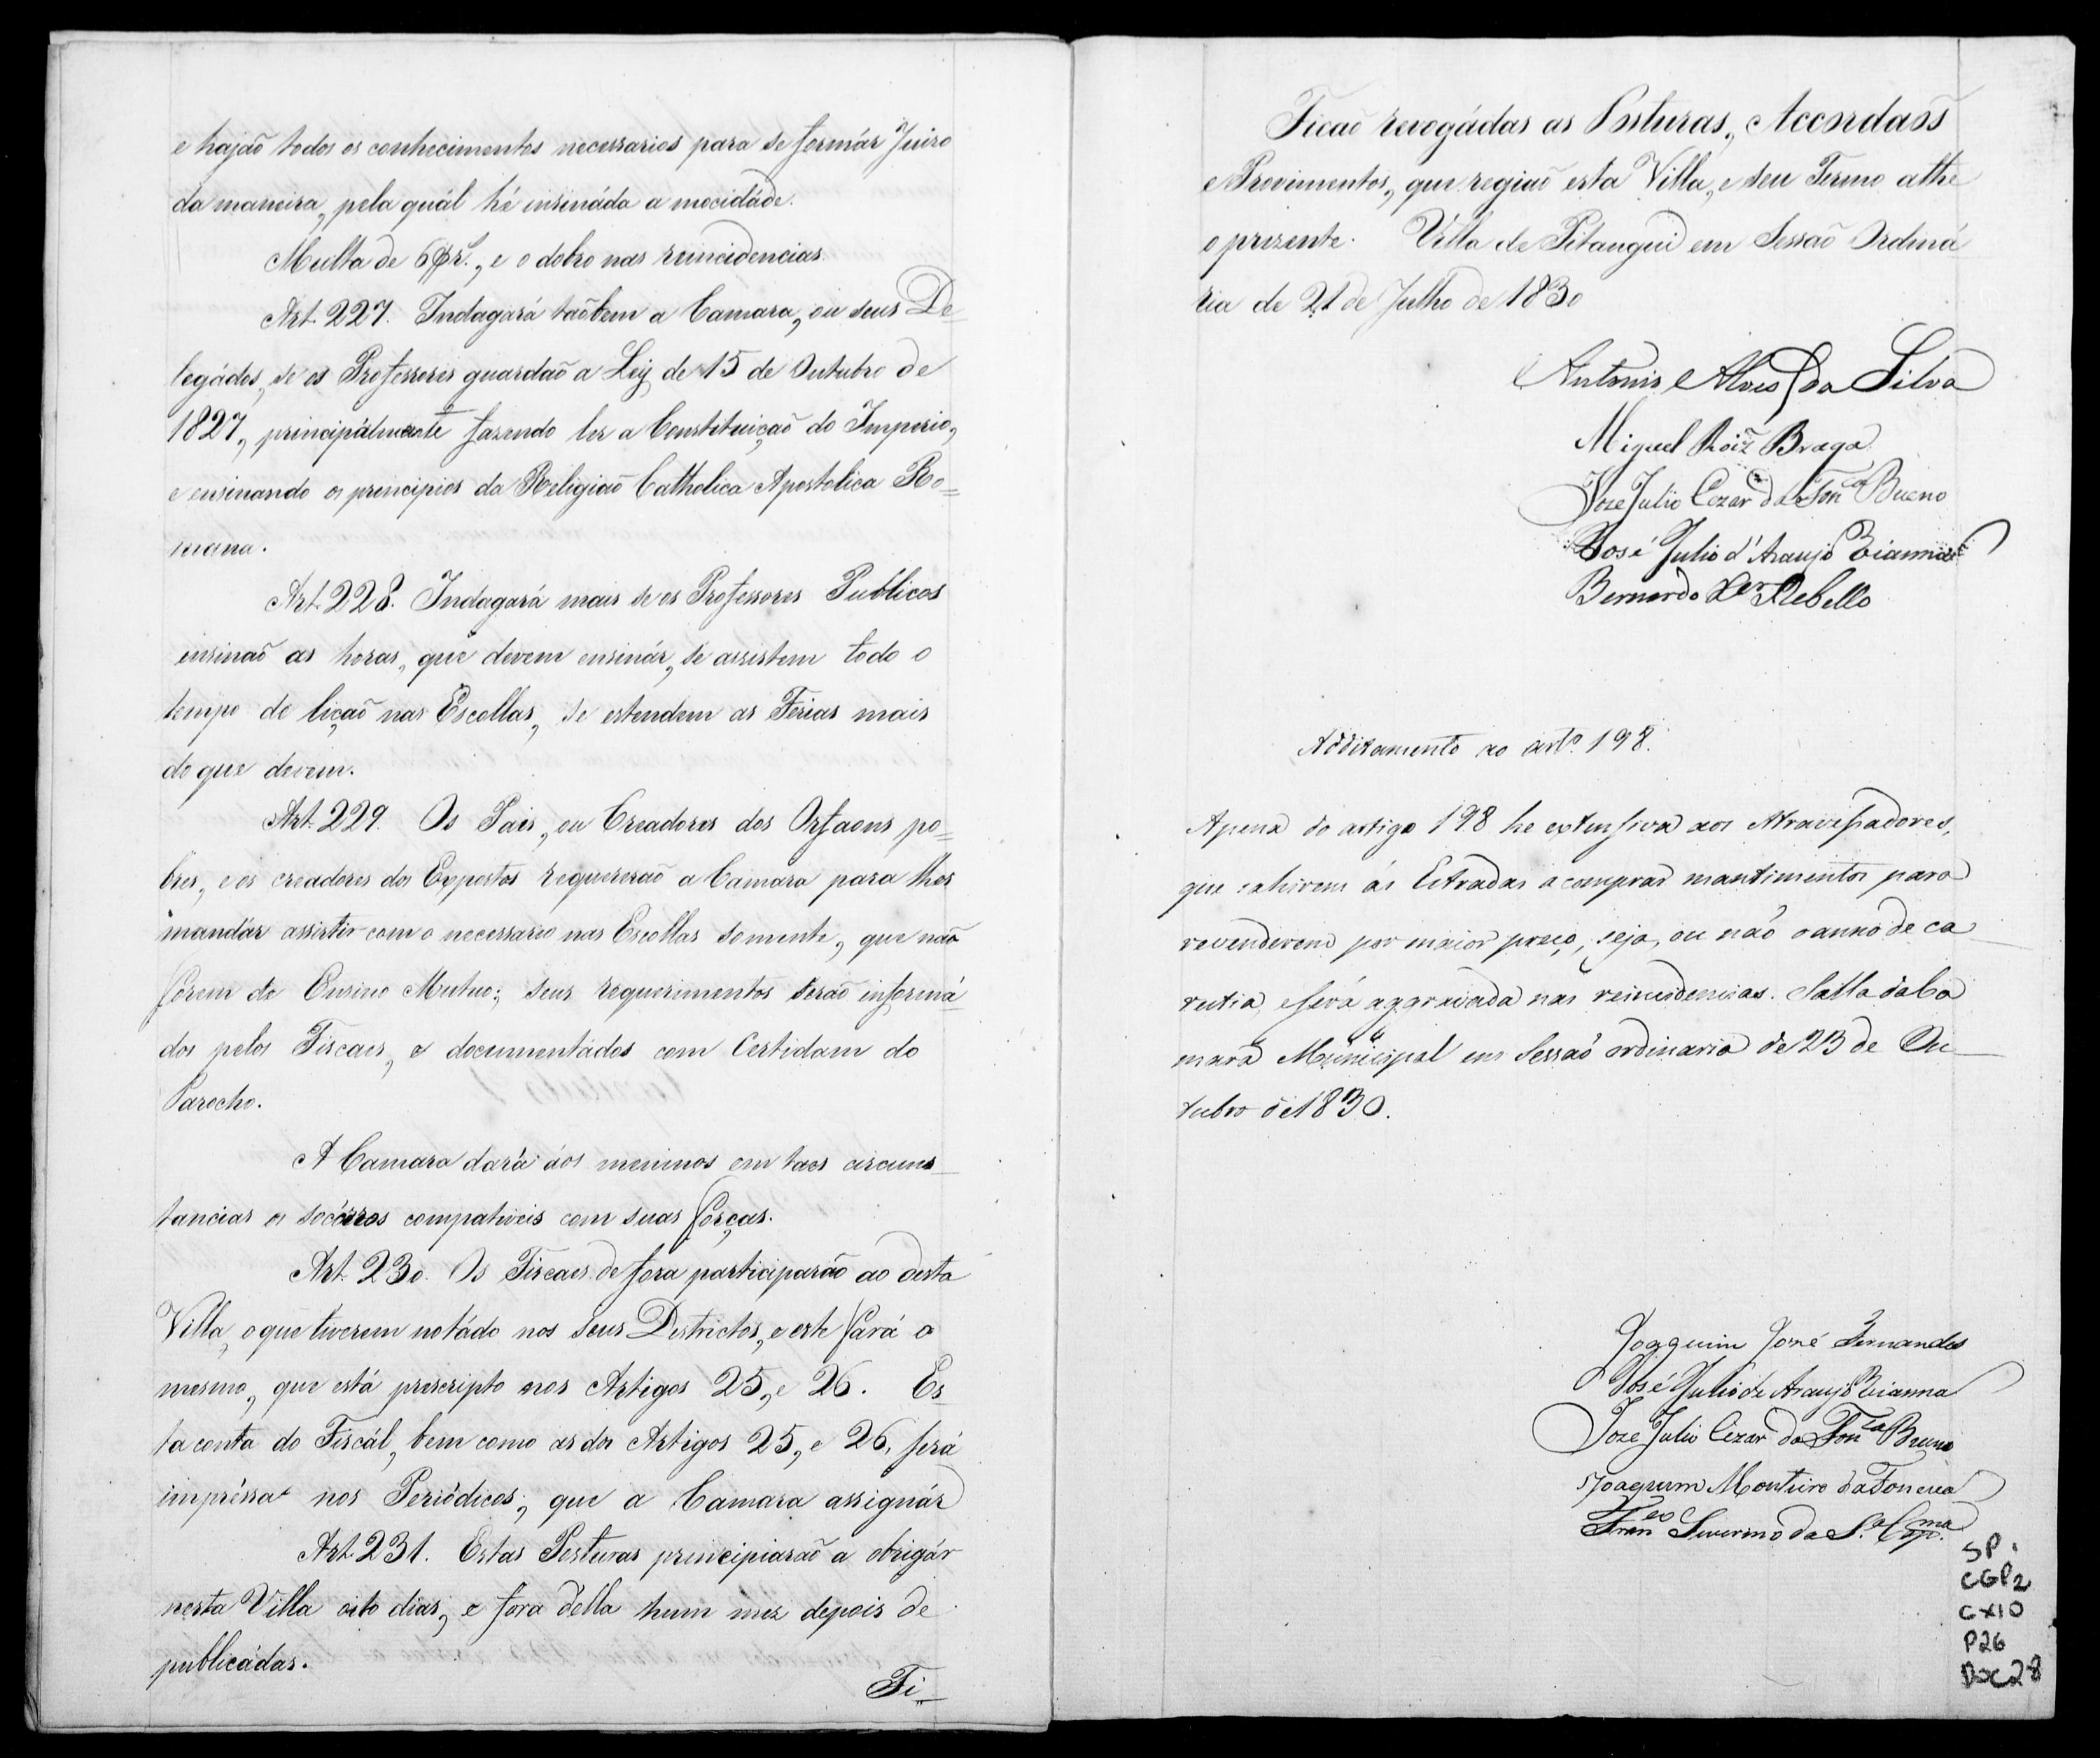 e hajaõ todos os conhecimentos necessarios para se formár Juizo
da maneira, pela quál hé insináda a mocidáde.
Multa de 6$rs., e o dobro nas reincidencias.
Art. 227. Indagará taõbem a Camara, ou seus De=
legádos, se os Professores guardaõ a Ley de 15 de Outubro de
1827, principálmente fazendo ler a Constituiçaõ do Imperio,
e ensinando os principios da Religiaõ Catholica Apostolica Ro=
mana.
Art. 228. Indagará mais se os Professores Publicos
insinaõ as horas, que devem ensinár, se assistem todo o
tempo de liçaõ nas Escollas, se estendem as Ferias mais
do que devem.
Art. 229. Os Pais, ou Creadores dos Orfaons po=
bres, e os creadores dos Expostos requereraõ a Camara para lhes
mandár assistir com o necessario nas Escollas somente, que naõ
fórem de Ensino Mutuo; seus requerimentos seraõ informá=
dos pelos Fiscaes, e documentádos com Certidam do
Parocho.
A Camara dará áos meninos em taes circuns=
tancias os socórros compativeis com suas forças.
Art. 230. Os Fiscaes de fora participarão ao desta
Villa, o que tiverem notádo nos seus Destrictos, e este fará o
mesmo, que está prescripto nos Artigos 25, e 26. Es=
ta conta do Fiscál, bem como as dos Artigos 25, e 26, será
impréssa nos Periódicos, que a Camara assignár
Art. 231. Estas Posturas principiaraõ a obrigár
nesta Villa oito dias, e fora d'ella hum mez depois de
publicádas.
Fi=
Ficaõ revogádas as Posturas, Accordaõs
e Provimentos, que regiaõ esta Villa, e seu Termo athe
o prezente. Villa de Pitangui em Sessaõ Ordiná
ria de 21 de Julho de 1830
Antonio Alves da Silva
Miguel Roiz Braga
Joze Julio Cezar da Fonca Bueno
José Julio d'Araujo Vianna
Bernardo Xer Rebello
Additamento ao arto. 198.
Apena do artigo 198 he extensiva aos Atravessadores,
que sahirem ás Estradas a comprar mantimentos para
revenderem por maior preço, seja, ou não o anno de ca
restia, e será aggravada nas reincidencias. Salla da Ca
mara Municipal em Sessaõ ordinaria de 23 de Ou
tubro de 1830.
Joaquim José Fernandes
José Julio de Araujo Vianna
Joze Julio Cezar da Fonca Bueno
Joaquim Monteiro da Fonceca
Franco Severino da S.
SP.
CGP2
CX10
P26
DOC28